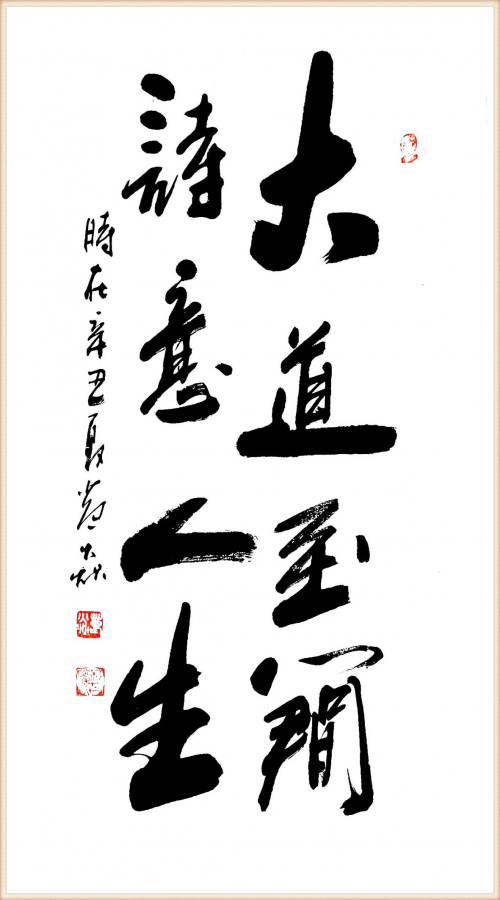 大道至简
詩意人生
時在辛丑夏黄